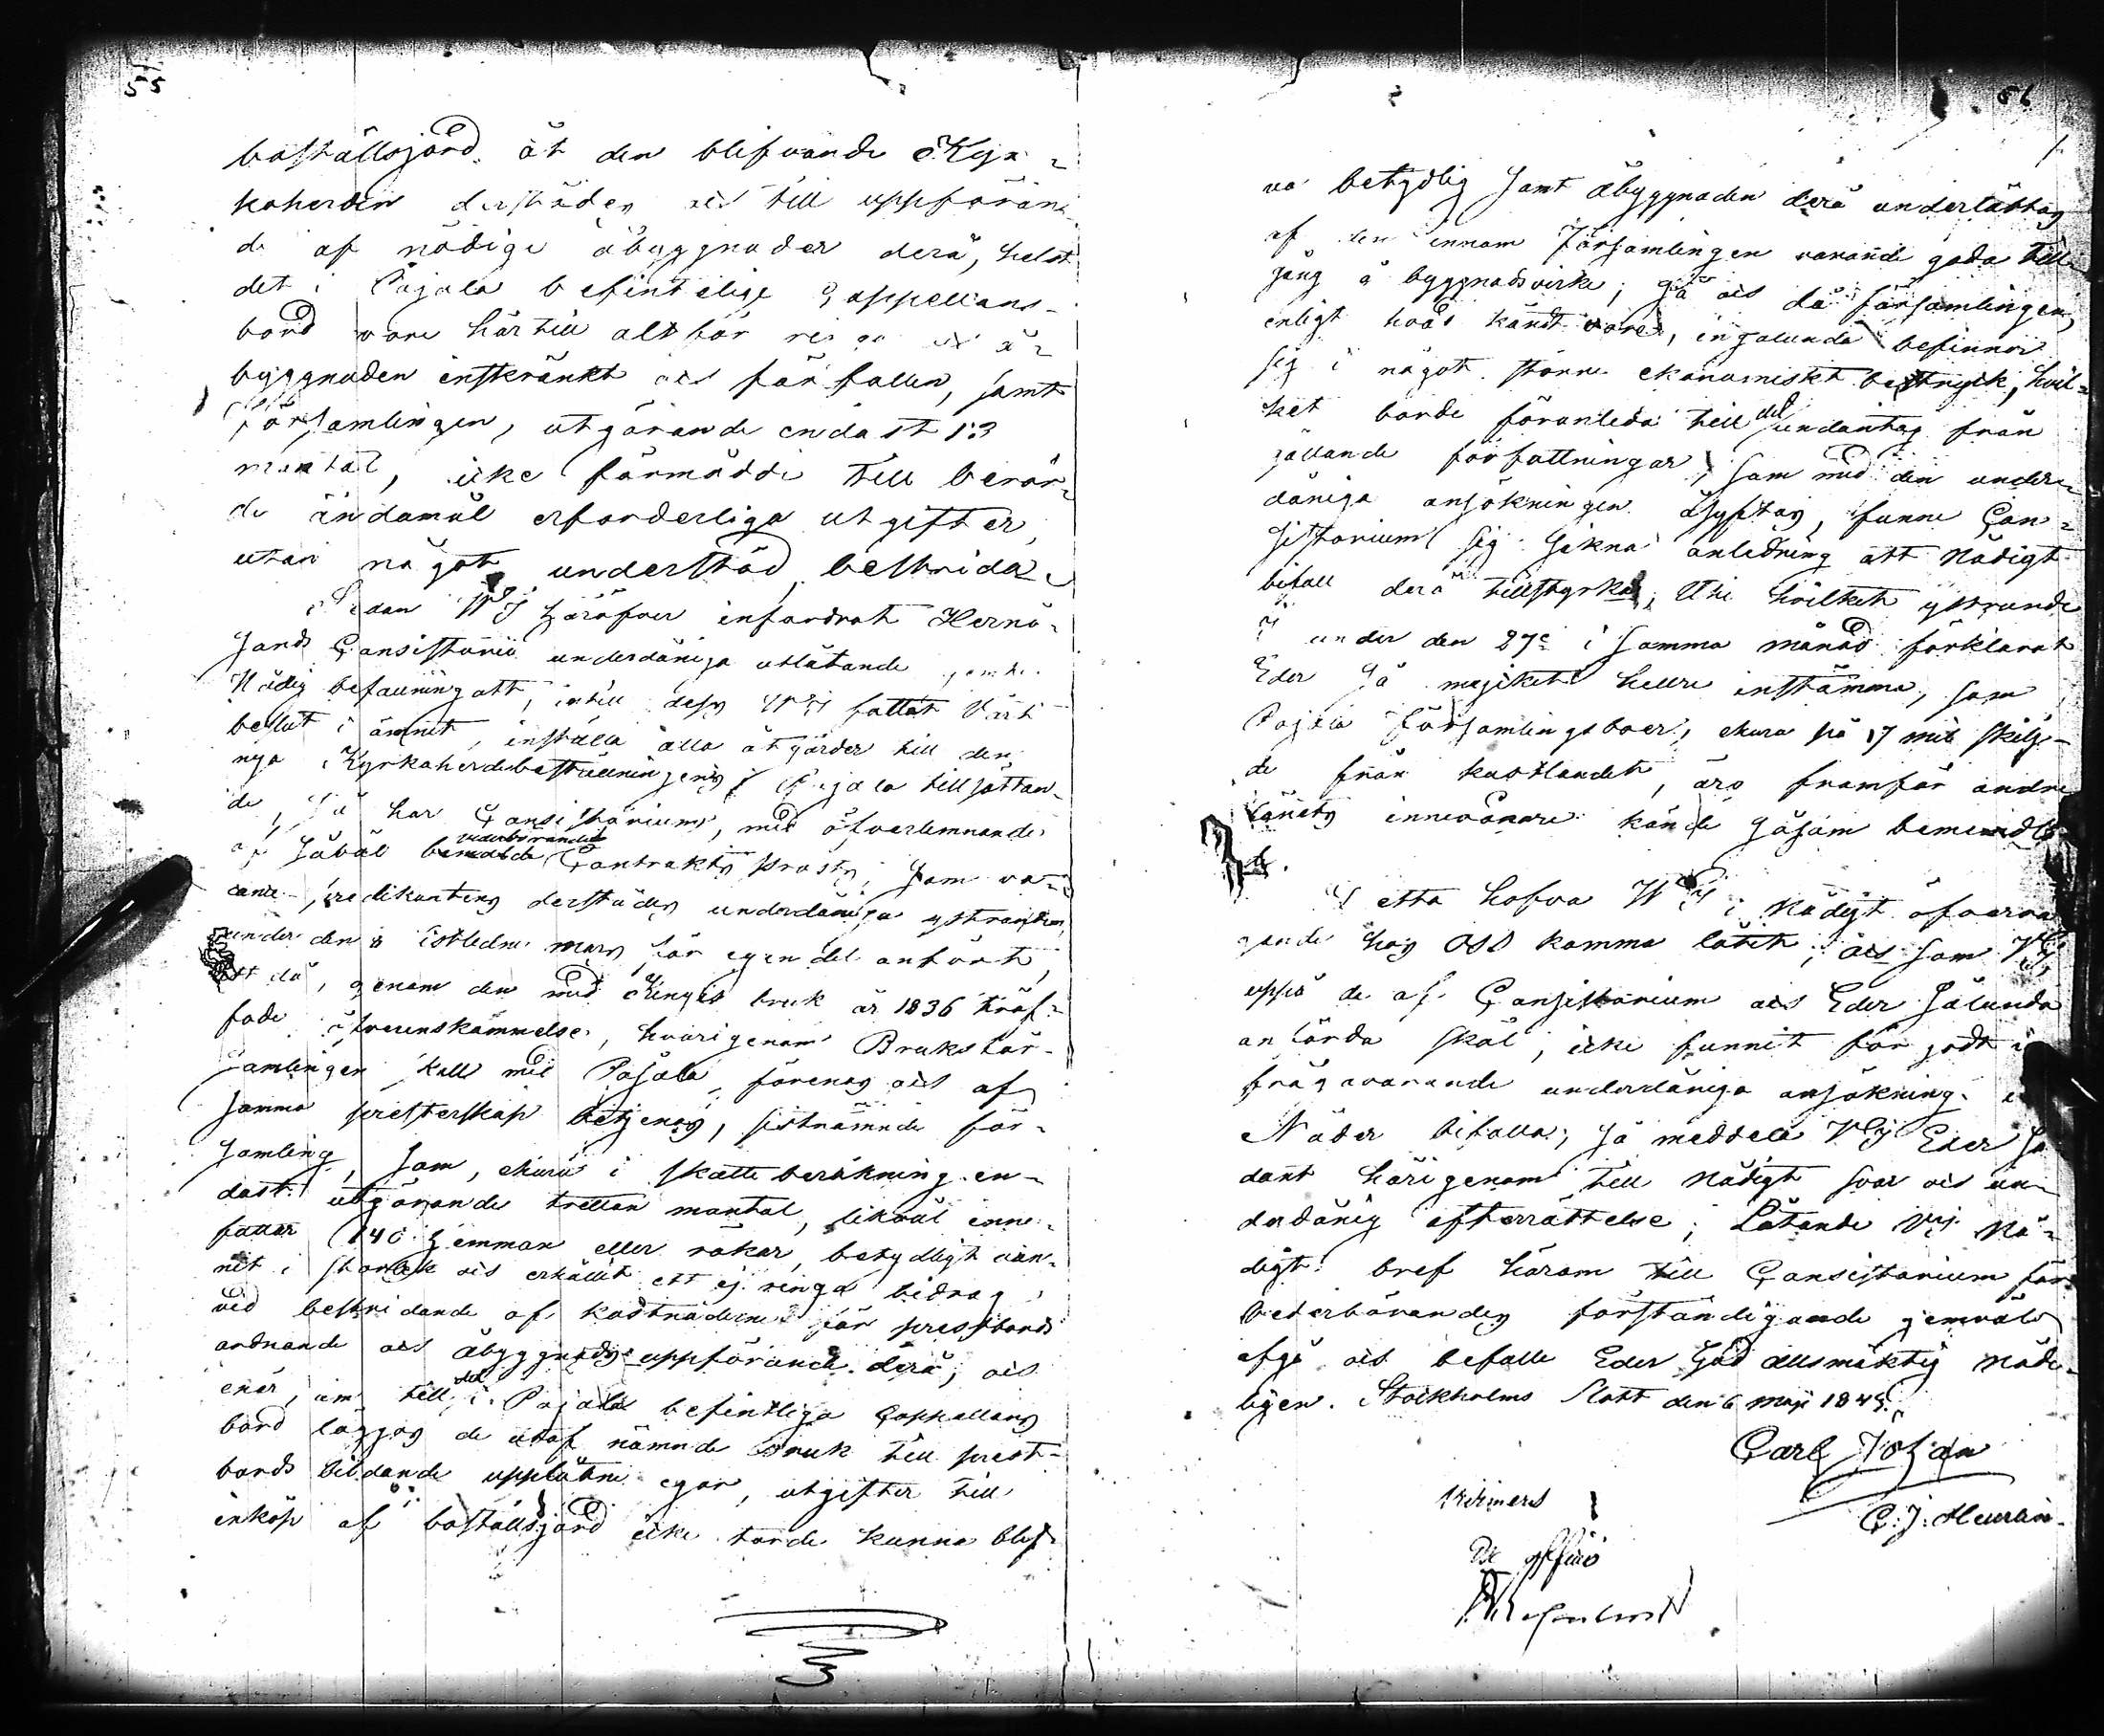 55
boställsjord åt den blifvande Kyr-
koherden derstädes och till uppföran-
de af nödige åbyggnader derå, helst
det i Pajala befintelige Cappellans-
bord vore härtill alltför ringa och å-
byggnaden inskränkt och förfallen, samt
församlingen, utgörande endast 13
mantal, icke förmådde till berör-
de ändamål erforderliga utgifter,
utan något understöd, bestrida.
Sedan Wij häröfver infordrat Hernö-
sands Consistorii underdåniga utlåtande jemte
Nådig befallning att, intill dess Wij fattat Vårt
beslut i ämnet, inställa alla åtgärder till den
nya Kyrkoherdebeställningens i Pajala tillsättan-
de, så har Consistorium, med öfverlemnande
af såväl vederbörande Contrakts Prosts, som va-
cance-predikantens derstädes underdåniga yttranden
under den 8 sistledne Mars för egen del anfört,
att då, genom den med Kengis bruk år 1836 träf-
fade öfverenskommelse, hvarigenom Bruksför-
samlingen skall med Pajala förenas och af
samma presterskap betjenas, sistnämnde för-
samling, som, ehuru i skatteberäkning en-
dast utgörande tretton mantal, likväl inne-
fattar 140 hemman eller rökar, betydligt vun-
nit i storlek och erhållit ett ej ringa bidrag
vid bestridande af kostnaderne för prestbords
ordnande och åbyggnads uppförande derå; och
enär, om till det i Pajala befintliga Cappellans
bord läggas de utaf nämnde Bruk till prest-
bords bildande upplåtne egor, utgifter till
inköp af boställsjord icke torde kunna blif-
56
va betydlig samt åbyggnaden derå underlättas
af den innom Församlingen varande goda till-
gång å byggnadsvirke; så och då församlingen,
enligt hvad kändt vore, ingalunda befinner
sig i något större ekonomiskt betryck, hvil-
ket borde föranleda till det undantag från
gällande författningar, som med den under-
dåniga ansökningen åsyftas, funne Con-
sistorium sig sakna anledning att Nådigt
bifall derå tillstyrka; Uti hvilket yttrande
I under den 27e i samma månad förklarat
Eder så mycket hellre instämma, som
Pajala Församlingsboer, ehuru på 17 mil skilj-
de från kustlandet, äro framför andre
länets innevånare kände såsom bemedla-
de.
Detta hafva Wij i Nådigt öfvervä-
gande hos Oss komma låtit; och som Wij
uppå de af Consistorium och Eder sålunda
anförda skäl, icke funnit för godt
frågavarande underdåniga ansökning i
Nåder bifalla; så meddela Wij Eder så-
dant härigenom till Nådigt svar och un-
derdånig efterrättelse; Låtande Wij Nå-
digt bref härom till Consistorium för
vederbörandes förståndigande jemväl
afgå och befalle Eder Gud allsmäktig Nåde-
ligen. Stockholms Slott den 6 Maji 1843.
Carl Johan
C: J: Heurlin
Vidimeras
Ex officio